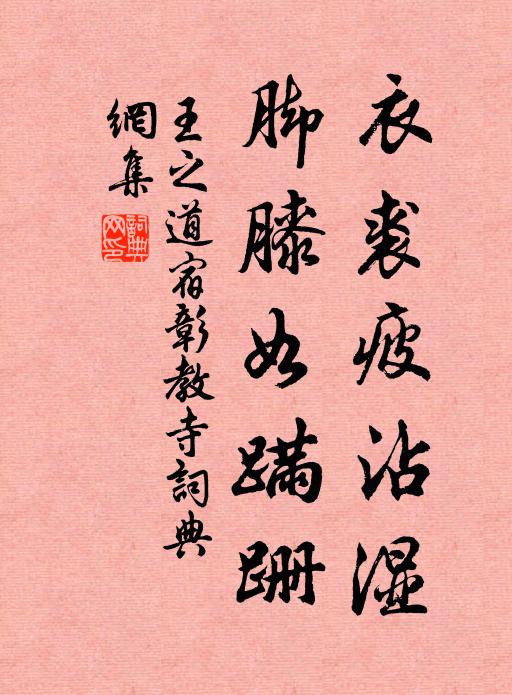 衣裘疲沾湿
脚膝如蹣跚
王之道宿彰教寺詞典
網集
詞典网印